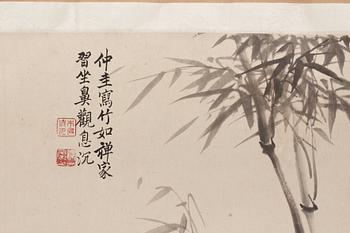 仲圭寫竹如禪家
習坐鼻觀息沉